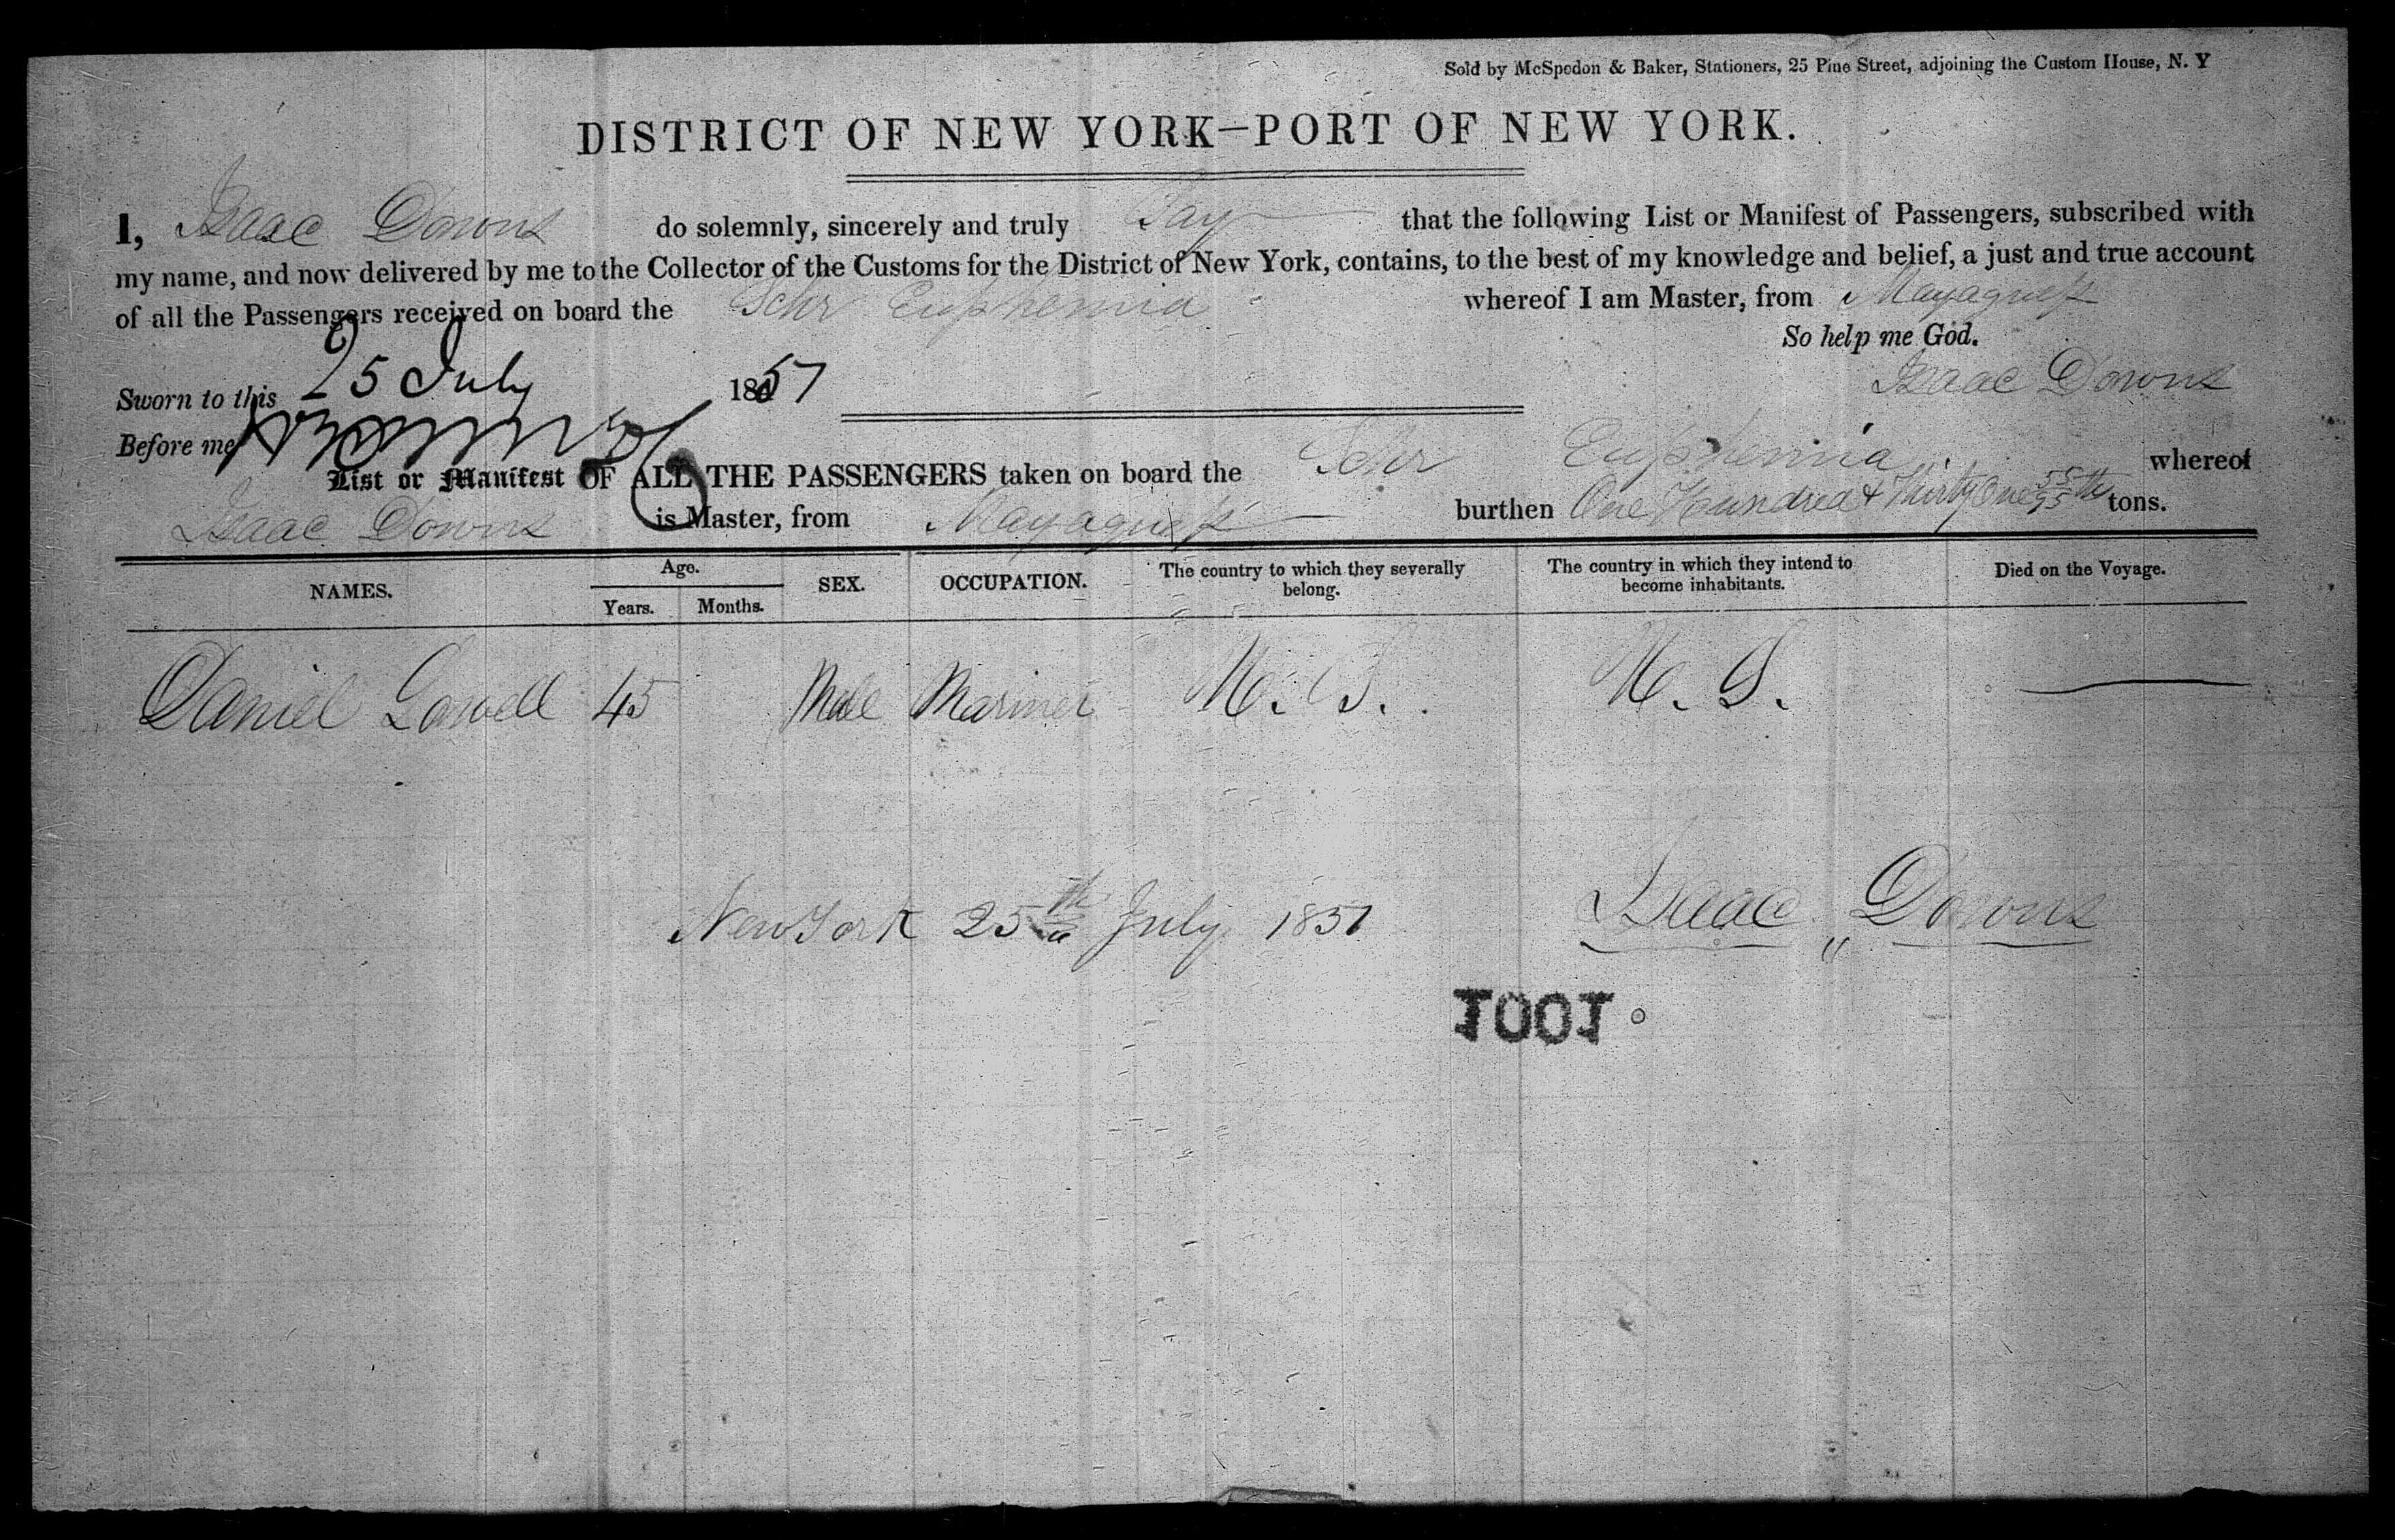 Sold by McSpedon & Baker, Stationers, 25 Pine Street, adjoining the Custom House, N. Y
DISTRICT OF NEW YORK—PORT OF NEW YORK.
I, Isaac Downs do solemnly, sincerely and truly Say that the following List or Manifest of Passengers, subscribed with
my name, and now delivered by me to the Collector of the Customs for the District of New York, contains, to the best of my knowledge and belief, a just and true account
of all the Passengers received on board the Schr Euphemia whereof I am Master, from Mayaguess
So help me God.
Sworn to this 25 July 1851 Isaac Downs
Before me
List or Manifest OF ALL THE PASSENGERS taken on board the Schr Euphemia whereof
Isaac Downs is Master, from Mayaguess burthen One Hundred & Thirty One 55/95 th tons.
NAMES. Age. Years. Months. SEX. OCCUPATION. The country to which they severally belong. The country in which they intend to become inhabitants. Died on the Voyage.
Daniel Lowell 45 Male Mariner U. S. U. S.
New York 25th July 1851 Isaac Downs
1001